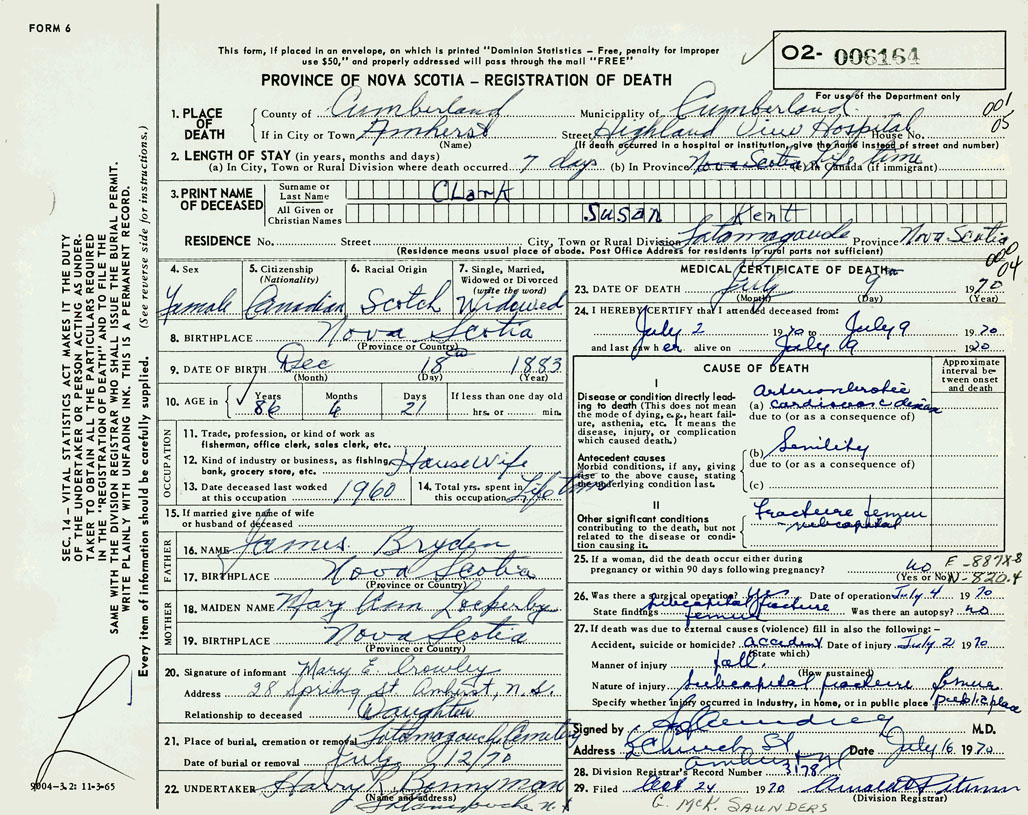 FORM 6
This form, if placed in an envelope, on which is printed "Dominion Statistics – Free, penalty for improper
use $50," and properly addressed will pass through the mail "FREE"
O2- 006164
For use of the Department only
PROVINCE OF NOVA SCOTIA – REGISTRATION OF DEATH
001
05
1. PLACE OF DEATH
County of Cumberland Municipality of Cumberland
If in City or Town Amherst Street Highland View Hospital House No.
(Name) (If death occurred in a hospital or institution, give the name instead of street and number)
2. LENGTH OF STAY (in years, months and days)
(a) In City, Town or Rural Division where death occurred 7 days (b) In Province Nova Scotia Life time (c) In Canada (if immigrant)
3. PRINT NAME OF DECEASED
Surname or Last Name Clark
All Given or Christian Names Susan Kent
RESIDENCE No. Street City, Town or Rural Division Tatamagouche Province Nova Scotia
(Residence means usual place of abode. Post Office Address for residents in rural parts not sufficient)
000
04
4. Sex Female
5. Citizenship (Nationality) Canadian
6. Racial Origin Scotch
7. Single, Married, Widowed or Divorced (write the word) Widowed
8. BIRTHPLACE Nova Scotia
(Province or Country)
9. DATE OF BIRTH Dec 18th 1883
(Month) (Day) (Year)
10. AGE in Years 86 Months 6 Days 21 If less than one day old
hrs. or min.
OCCUPATION
11. Trade, profession, or kind of work as
fisherman, office clerk, sales clerk, etc.
12. Kind of industry or business, as fishing,
bank, grocery store, etc. HouseWife
13. Date deceased last worked
at this occupation 1960
14. Total yrs. spent in
this occupation Life time
15. If married give name of wife
or husband of deceased
FATHER
16. NAME James Bryden
17. BIRTHPLACE Nova Scotia
(Province or Country)
MOTHER
18. MAIDEN NAME Mary Ann Lockerby
19. BIRTHPLACE Nova Scotia
(Province or Country)
20. Signature of informant Mary E. Crowley
Address 28 Spring St. Amherst, N.S.
Relationship to deceased Daughter
21. Place of burial, cremation or removal Tatamagouche Cemetery
Date of burial or removal July 12/70
22. UNDERTAKER Harry R. Bonnyman
(Name and address)
Tatamagouche N.S.
MEDICAL CERTIFICATE OF DEATH
23. DATE OF DEATH July 9 1970
(Month) (Day) (Year)
24. I HEREBY CERTIFY that I attended deceased from:
July 2 1970 to July 9 1970
and last saw her alive on July 9 1970
CAUSE OF DEATH
Approximate interval between onset and death
I
Disease or condition directly leading to death (This does not mean the mode of dying, e.g., heart failure, asthenia, etc. It means the disease, injury, or complication which caused death.)
(a) Arteriosclerotic
cardiovasc disease
due to (or as a consequence of)
Antecedent causes
Morbid conditions, if any, giving rise to the above cause, stating the underlying condition last.
(b) Senility
due to (or as a consequence of)
(c)
II
Other significant conditions
contributing to the death, but not related to the disease or condition causing it.
Fracture femur
subcapital
25. If a woman, did the death occur either during
pregnancy or within 90 days following pregnancy? no
(Yes or No)
E-887X-8
N-820.4
26. Was there a surgical operation? yes Date of operation July 4 1970
State findings subcapital fracture femur Was there an autopsy? no
27. If death was due to external causes (violence) fill in also the following:–
Accident, suicide or homicide? accident Date of injury July 2 1970
(State which)
Manner of injury fall.
(How sustained)
Nature of injury subcapital fracture femur
Specify whether injury occurred in Industry, in home, or in public place public place
Signed by M.D.
Address Church St Date July 16 1970
Amherst
28. Division Registrar's Record Number 3178
29. Filed 24 1970
(Division Registrar)
G. McK. SAUNDERS
SEC. 14 – VITAL STATISTICS ACT MAKES IT THE DUTY
OF THE UNDERTAKER OR PERSON ACTING AS UNDER-
TAKER TO OBTAIN ALL THE PARTICULARS REQUIRED
IN THE "REGISTRATION OF DEATH" AND TO FILE THE
SAME WITH THE DIVISION REGISTRAR WHO SHALL ISSUE THE BURIAL PERMIT.
WRITE PLAINLY WITH UNFADING INK. THIS IS A PERMANENT RECORD.
Every item of information should be carefully supplied. (See reverse side for instructions.)
9004-3.2: 11-3-65